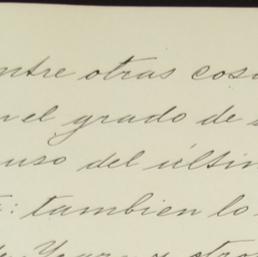 ntre otras cosa
n el grado de
uso del últim
: tambien lo
y otro